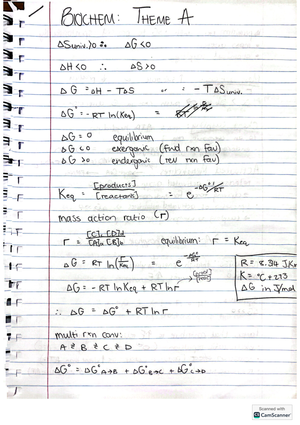 BIOCHEM: THEME A
ΔSuniv.>0 ∴ ΔG<0
ΔH<0 ∴ ΔS>0
ΔG = ΔH - TΔS or = -TΔSuniv.
ΔG° = -RT ln(Keq) =
ΔG = 0 equilibrium
ΔG < 0 exergonic (fwd rxn fav)
ΔG > 0 endergonic (rev rxn fav)
Keq = [products] / [reactants] = e^-ΔG°/RT
mass action ratio (r)
r = [C]c [D]d / [A]a [B]b equilibrium: r = Keq
ΔG = RT ln(r/Keq) = e
R = 8.34 J/K
K = °C + 273
ΔG in J/mol
ΔG = -RT ln Keq + RT ln r
∴ ΔG = ΔG° + RT ln r
multi rxn conv:
A ⇌ B ⇌ C ⇌ D
ΔG° = ΔG°A→B + ΔG°B→C + ΔG°C→D
Scanned with
CS CamScanner